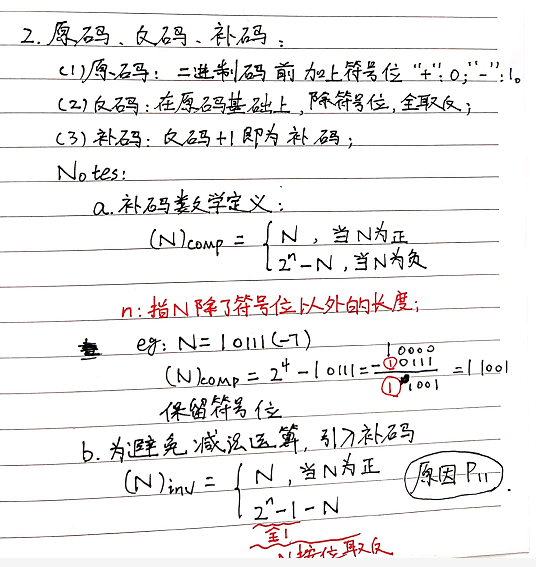 2. 原码、反码、补码：
(1)原码：二进制码前加上符号位"+":0;"-":1。
(2)反码：在原码基础上,除符号位,全取反；
(3)补码：反码+1即为补码；
Notes:
a.补码数学定义：
(N)comp = { N , 当N为正
2ⁿ-N , 当N为负
n:指N除了符号位以外的长度；
eg: N=10111(-7)
10000
(N)comp = 2⁴-10111 = -10111 = 11001
1 1001
保留符号位
b.为避免减法运算,引入补码
(N)inv = { N , 当N为正
2ⁿ-1-N
原因P11
全1
N按位取反